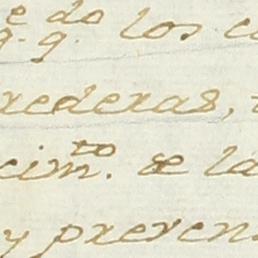 q.e q.do los
rederas,
cim.to se la
y preven